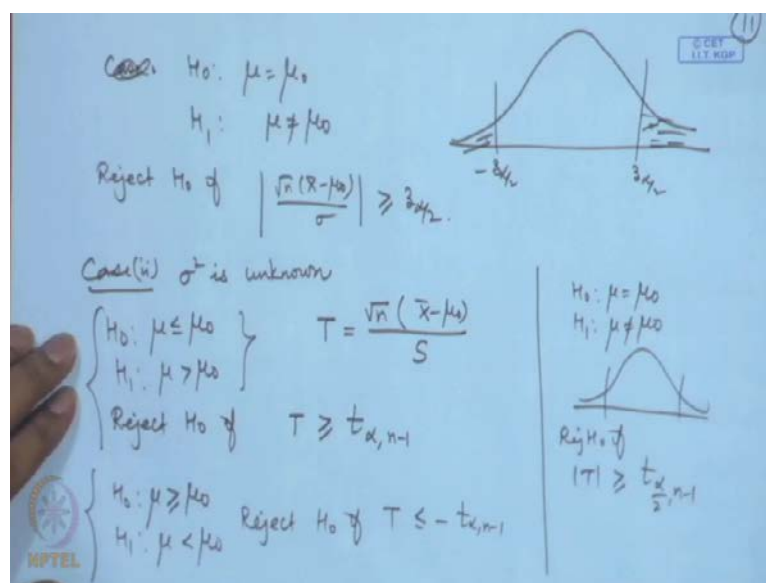 11
© CET
I.I.T. KGP
Case. H₀: μ = μ₀
H₁: μ ≠ μ₀
Reject H₀ if |√n (x̄-μ₀) / σ| ≥ z_{α/2}.
-z_{α/2}
z_{α/2}
Case(ii) σ² is unknown
H₀: μ ≤ μ₀
H₁: μ > μ₀
T = √n (x̄-μ₀) / S
Reject H₀ if T ≥ t_{α, n-1}
H₀: μ ≥ μ₀
H₁: μ < μ₀ Reject H₀ if T ≤ - t_{α, n-1}
H₀: μ = μ₀
H₁: μ ≠ μ₀
Rej H₀ if
|T| ≥ t_{α/2, n-1}
NPTEL